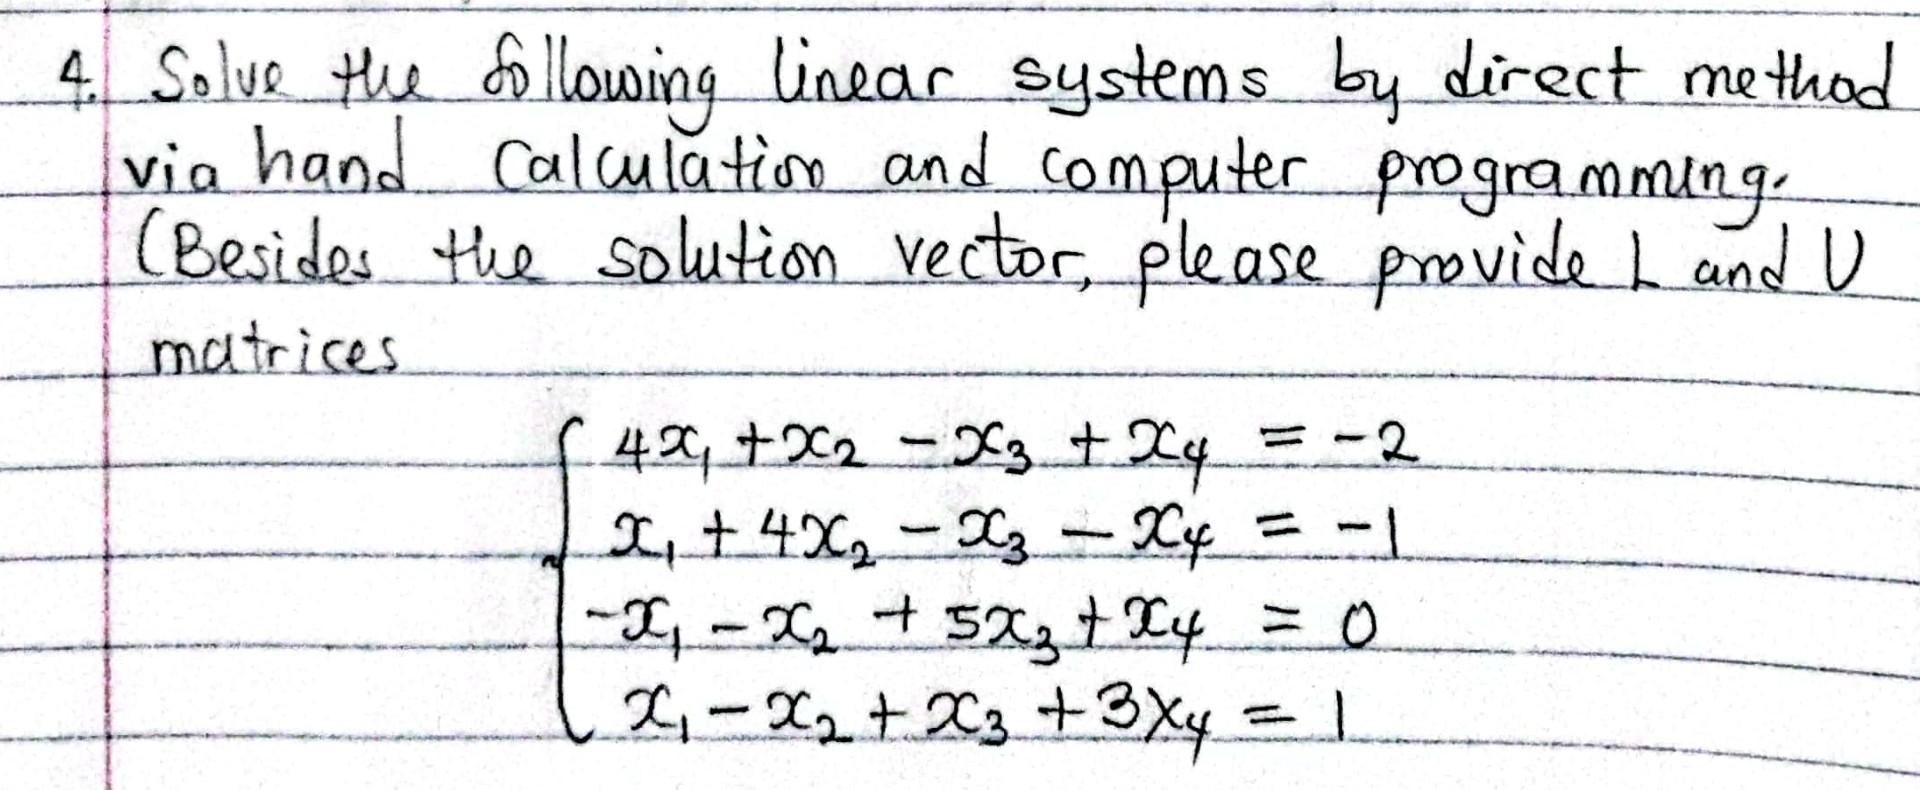 4. Solve the following linear systems by direct method
via hand calculation and computer programming.
(Besides the solution vector, please provide L and U
matrices
4x₁ + x₂ - x₃ + x₄ = -2
x₁ + 4x₂ - x₃ - x₄ = -1
-x₁ - x₂ + 5x₃ + x₄ = 0
x₁ - x₂ + x₃ + 3x₄ = 1